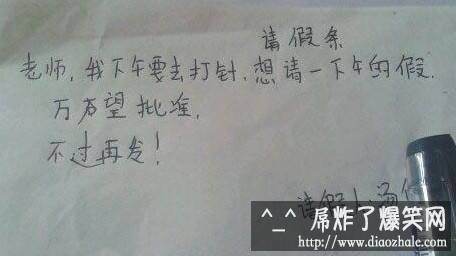 请假条
老师,我下午要去打针,想请一下午的假.
万万望批准,
不过再发!
请假人
^_^ 屌炸了爆笑网
http://www.diaozhale.com/